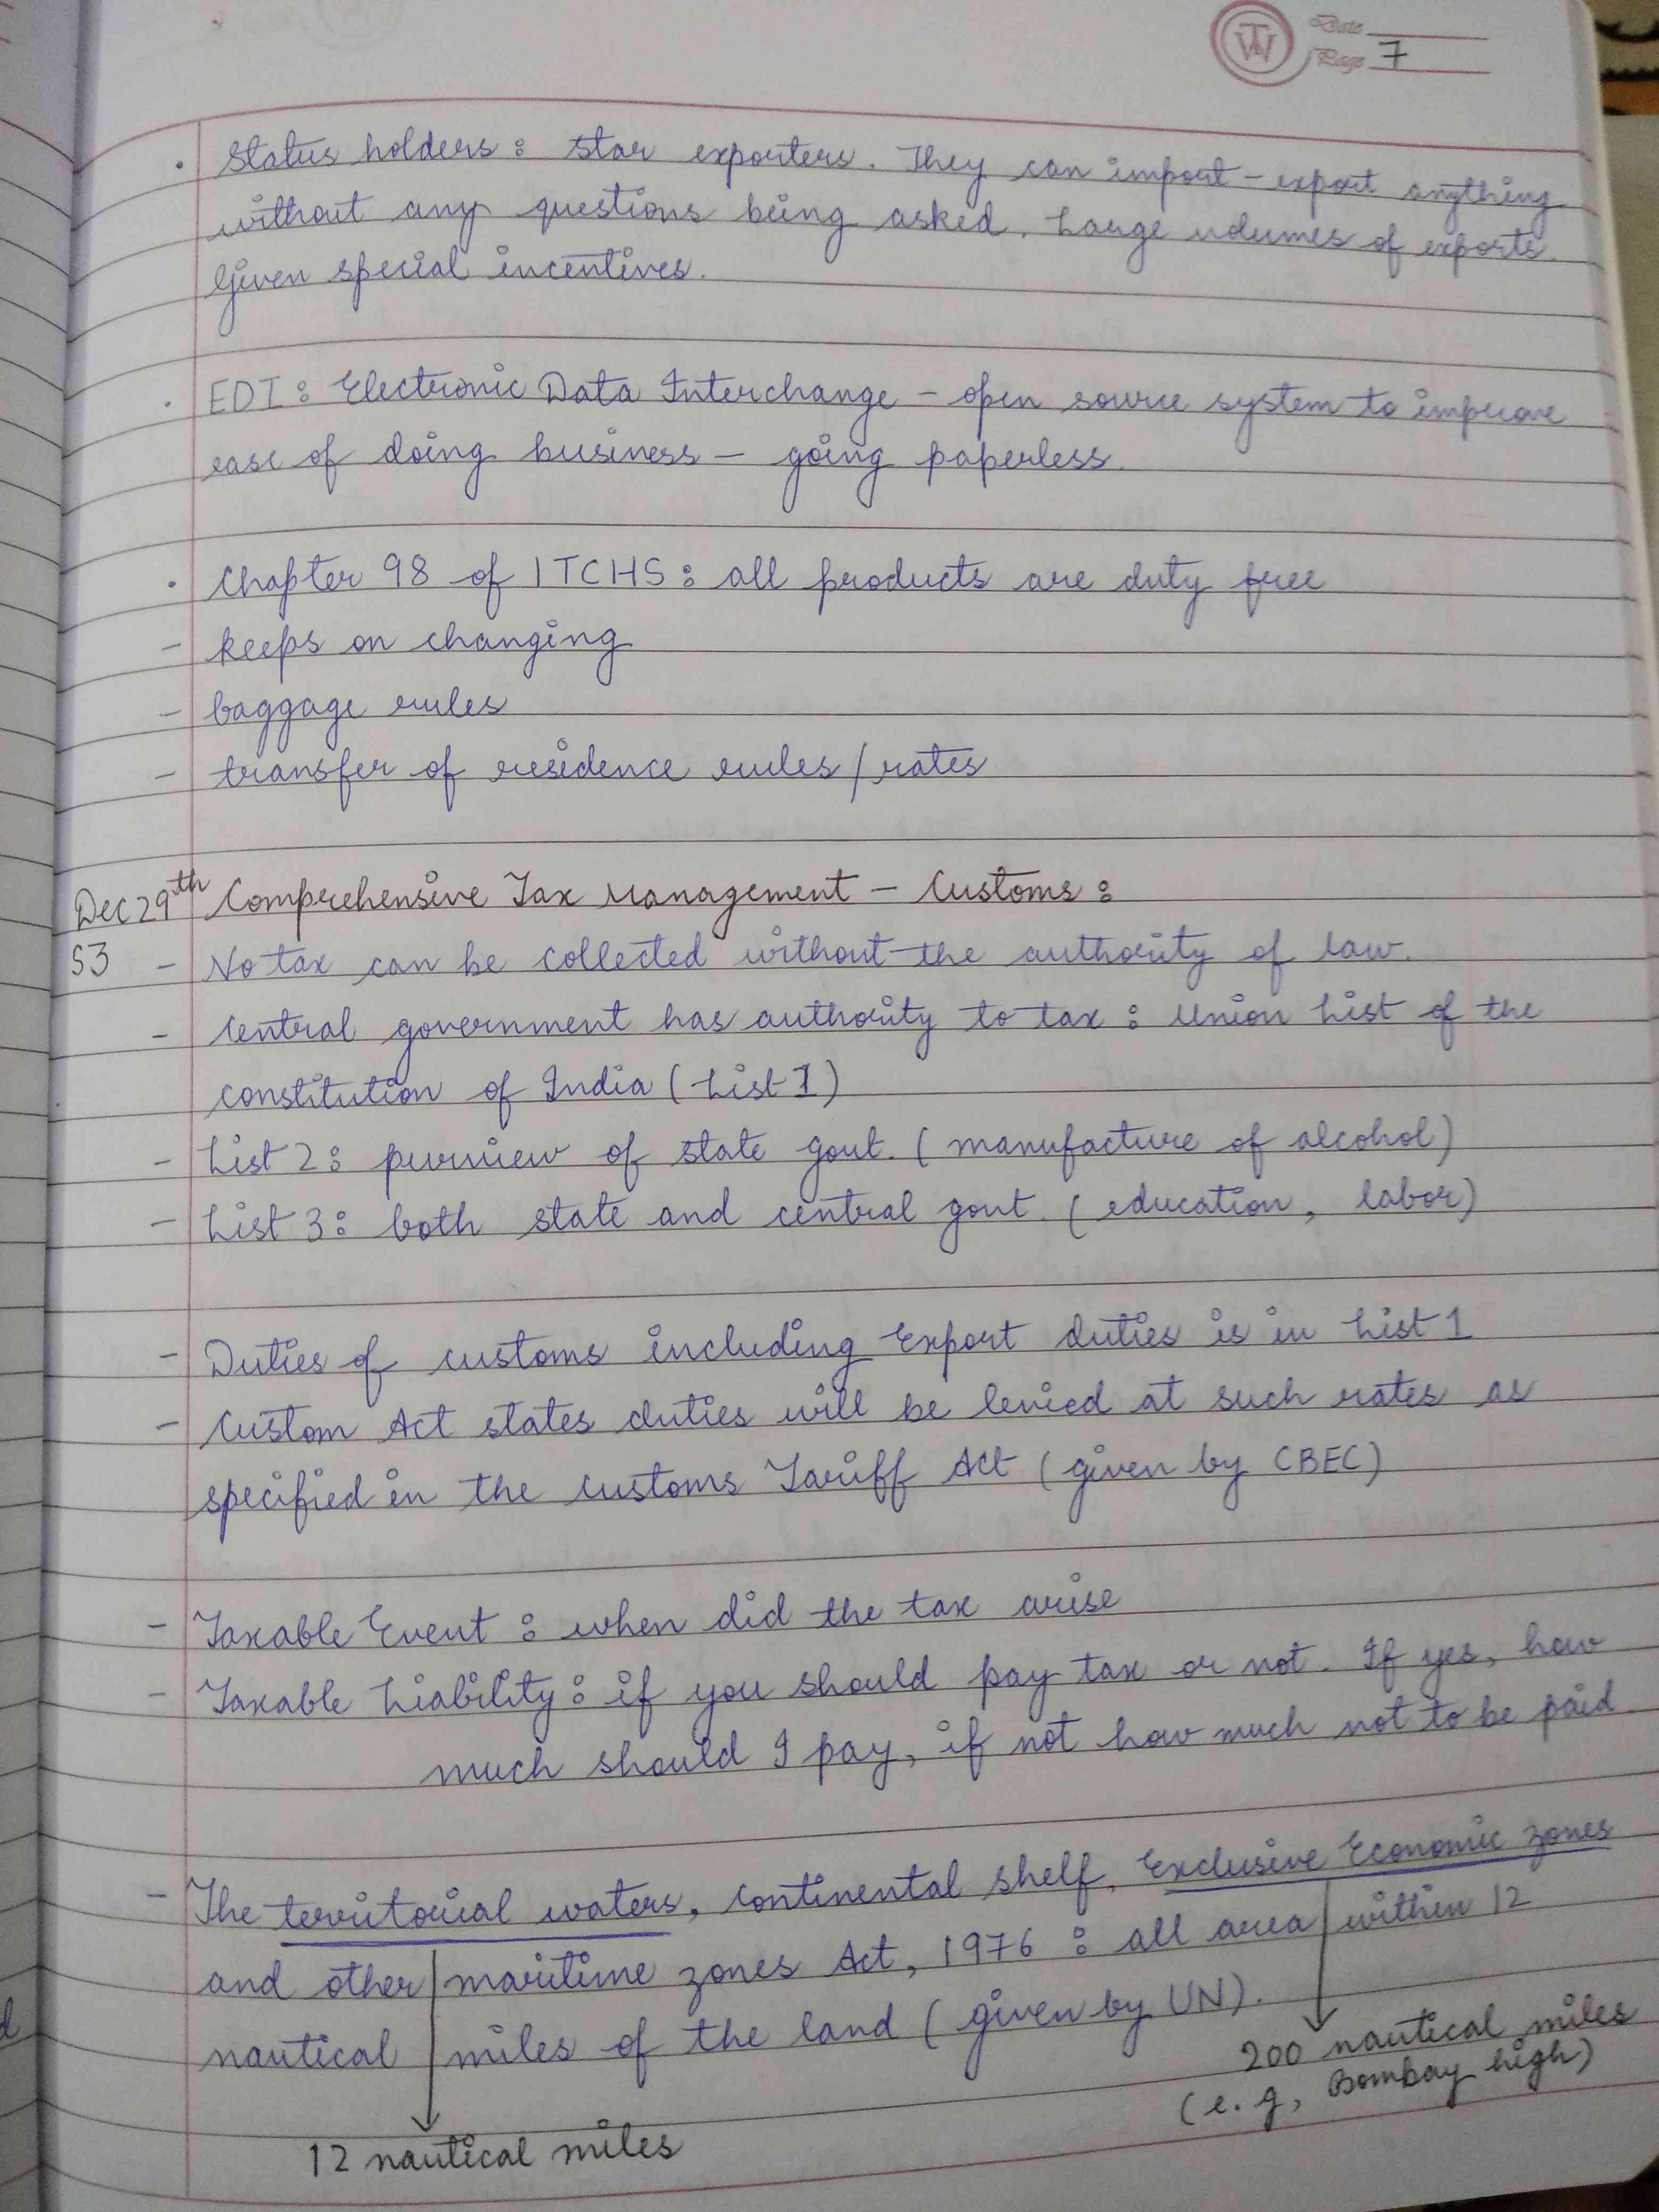 TW Date
Page 7
· Status holders : star exporters. They can import - export anything
without any questions being asked. Large volumes of exports.
Given special incentives.
· EDI : Electronic Data Interchange - open source system to improve
ease of doing business - going paperless.
· Chapter 98 of ITCHS : all products are duty free
- keeps on changing
- baggage rules
- transfer of residence rules / rates
Dec 29th Comprehensive Tax Management - Customs :
S3 - No tax can be collected without the authority of law.
- Central government has authority to tax : Union List of the
constitution of India (List 1)
- List 2 : purview of state govt. (manufacture of alcohol)
- List 3 : both state and central govt. (education, labor)
- Duties of customs including Export duties is in List 1
- Custom Act states duties will be levied at such rates as
specified in the Customs Tariff Act (given by CBEC)
- Taxable Event : when did the tax arise
- Taxable Liability : if you should pay tax or not. If yes, how
much should I pay, if not how much not to be paid.
- The territorial waters, continental shelf, Exclusive Economic zones
and other maritime zones Act, 1976 : all area within 12
nautical miles of the land (given by UN).
200 nautical miles
(e.g, Bombay high)
12 nautical miles